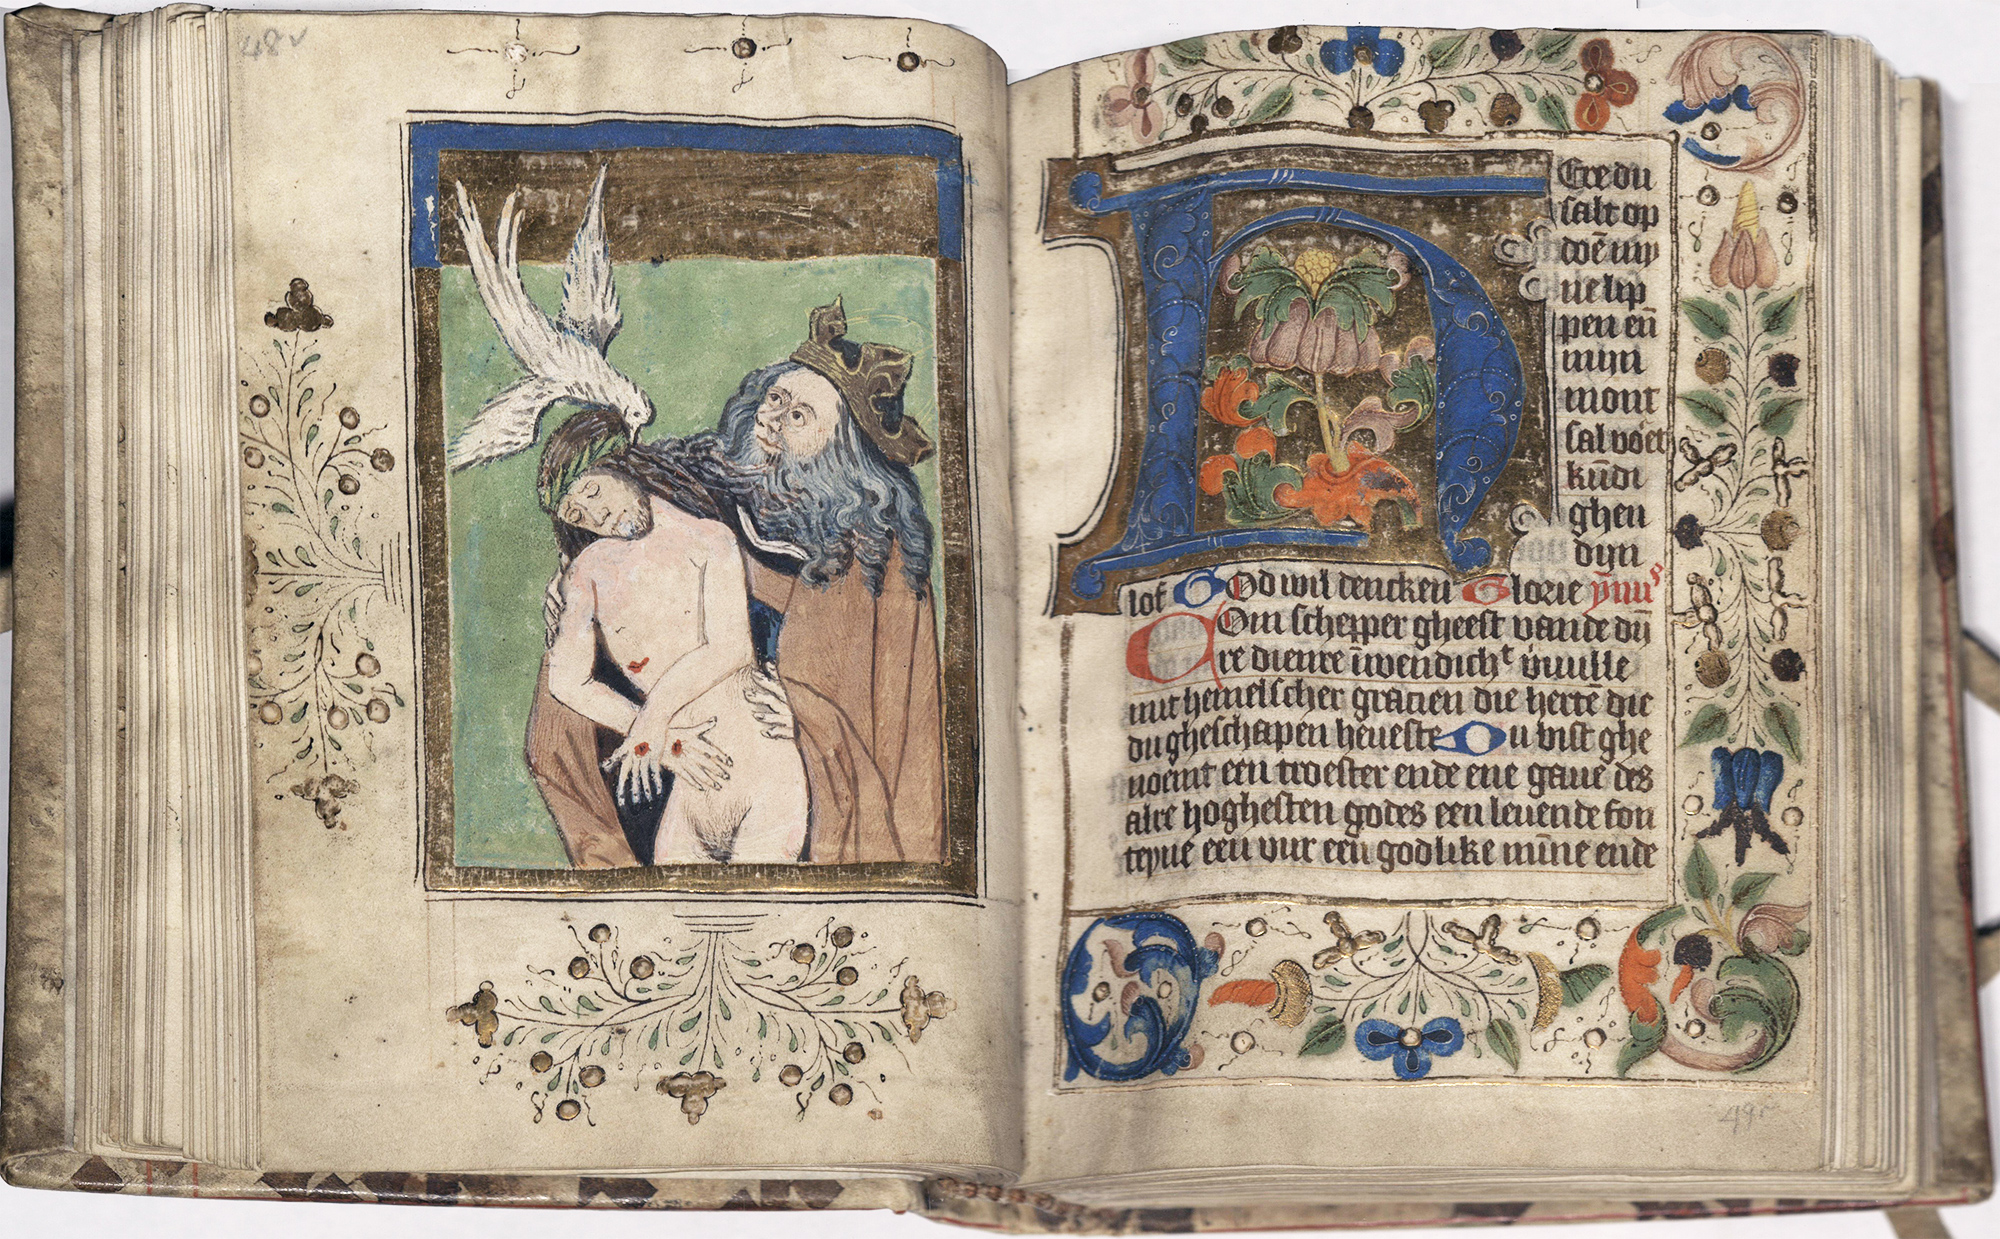 48v
HEre du
salt op
doē mÿ
ne lip
pen eñ
mijn
mont
sal v̄oet
kūdi
ghen
dijn
lof God wil dencken Glorie ȳmnꝰ
Com schepper gheest vande dÿ
re dienre īwendichᵗ v̄uulle
mit hemelscher gracien die herte die
du gheschapen heueste Du bist ghe
noemt een troester ende ene gaue des
alre hoghesten godes een leuende fon
teyne een vur een godlike mīne ende
49r